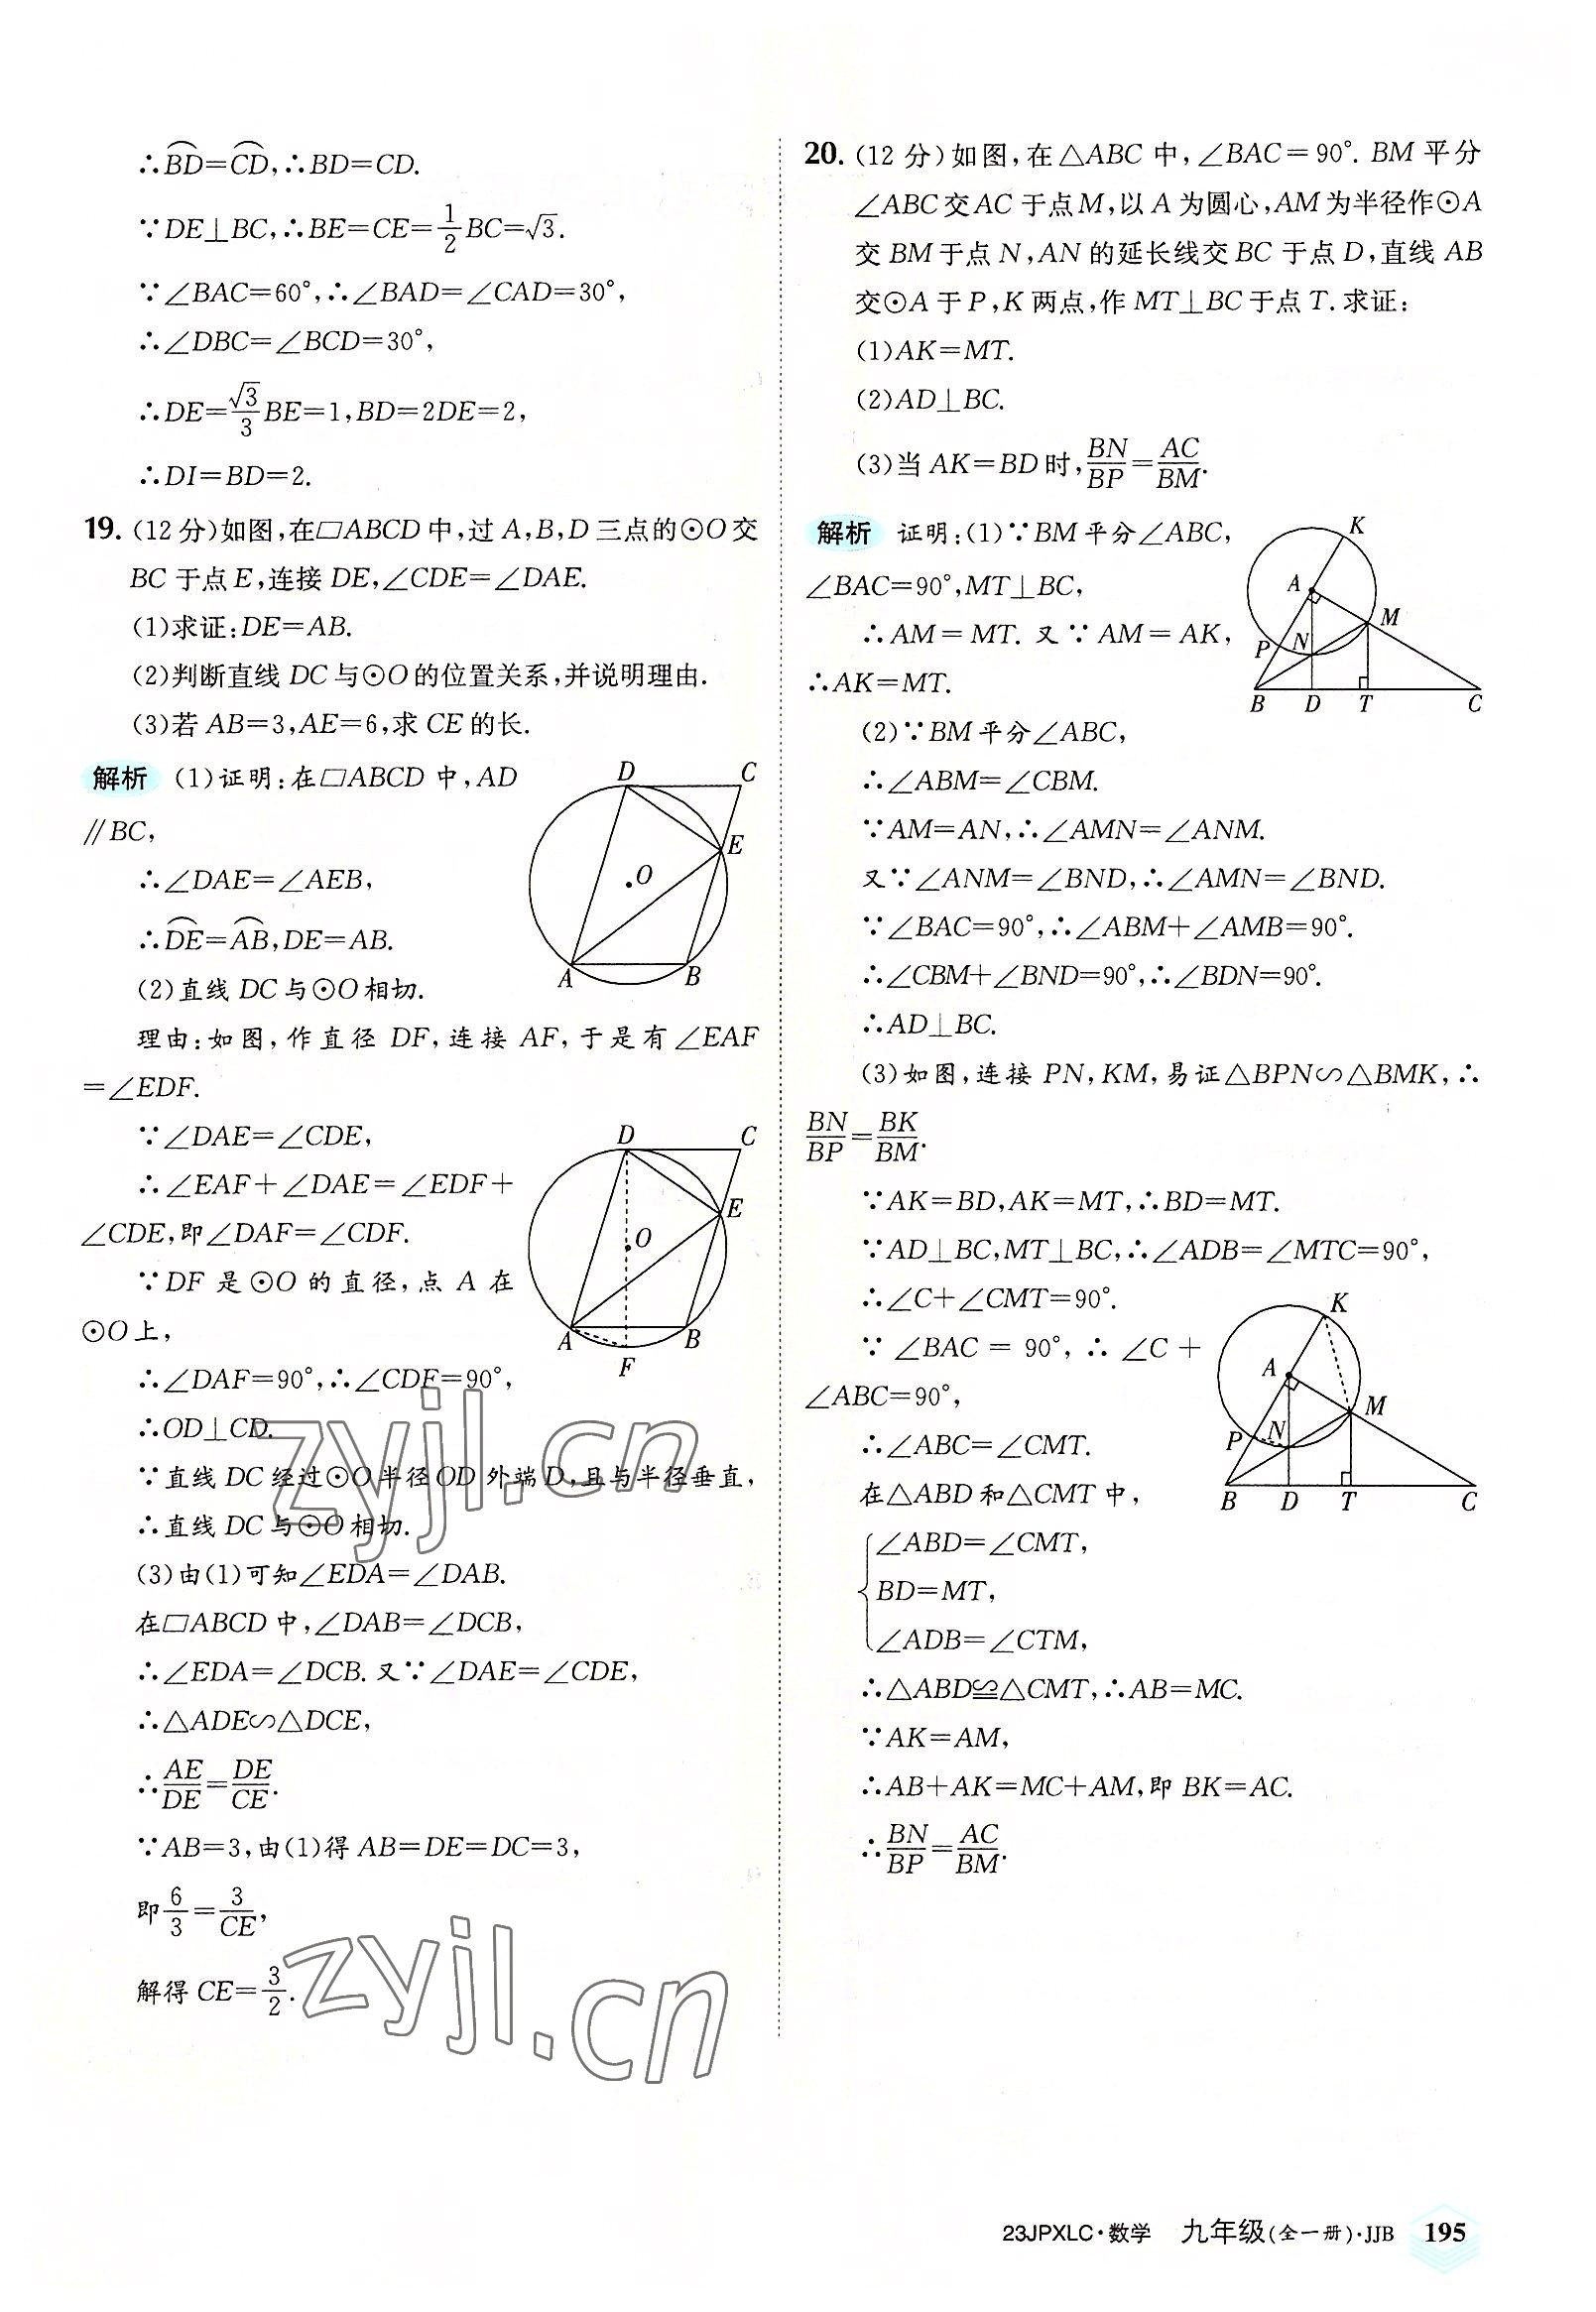 ∴BD=CD,∴BD=CD.
∵DE⊥BC,∴BE=CE=1/2BC=√3.
∵∠BAC=60°,∴∠BAD=∠CAD=30°,
∴∠DBC=∠BCD=30°,
∴DE=√3/3BE=1,BD=2DE=2,
∴DI=BD=2.
19.(12分)如图,在▱ABCD中,过A,B,D三点的⊙O交
BC于点E,连接DE,∠CDE=∠DAE.
(1)求证:DE=AB.
(2)判断直线DC与⊙O的位置关系,并说明理由.
(3)若AB=3,AE=6,求CE的长.
解析 (1)证明:在▱ABCD中,AD
∥BC,
∴∠DAE=∠AEB,
∴DE=AB,DE=AB.
(2)直线DC与⊙O相切.
理由:如图,作直径DF,连接AF,于是有∠EAF
=∠EDF.
∵∠DAE=∠CDE,
∴∠EAF+∠DAE=∠EDF+
∠CDE,即∠DAF=∠CDF.
∵DF是⊙O的直径,点A在
⊙O上,
∴∠DAF=90°,∴∠CDF=90°,
∴OD⊥CD.
∵直线DC经过⊙O半径OD外端D,且与半径垂直,
∴直线DC与⊙O相切.
(3)由(1)可知∠EDA=∠DAB.
在▱ABCD中,∠DAB=∠DCB,
∴∠EDA=∠DCB.又∵∠DAE=∠CDE,
∴△ADE∽△DCE,
∴AE/DE=DE/CE.
∵AB=3,由(1)得AB=DE=DC=3,
即6/3=3/CE,
解得CE=3/2.
D C E O A B
D C E O A B F
20.(12分)如图,在△ABC中,∠BAC=90°.BM平分
∠ABC交AC于点M,以A为圆心,AM为半径作⊙A
交BM于点N,AN的延长线交BC于点D,直线AB
交⊙A于P,K两点,作MT⊥BC于点T.求证:
(1)AK=MT.
(2)AD⊥BC.
(3)当AK=BD时,BN/BP=AC/BM.
解析 证明:(1)∵BM平分∠ABC,
∠BAC=90°,MT⊥BC,
∴AM=MT.又∵AM=AK,
∴AK=MT.
(2)∵BM平分∠ABC,
∴∠ABM=∠CBM.
∵AM=AN,∴∠AMN=∠ANM.
又∵∠ANM=∠BND,∴∠AMN=∠BND.
∵∠BAC=90°,∴∠ABM+∠AMB=90°.
∴∠CBM+∠BND=90°,∴∠BDN=90°.
∴AD⊥BC.
(3)如图,连接PN,KM,易证△BPN∽△BMK,∴
BN/BP=BK/BM.
∵AK=BD,AK=MT,∴BD=MT.
∵AD⊥BC,MT⊥BC,∴∠ADB=∠MTC=90°,
∴∠C+∠CMT=90°.
∵∠BAC=90°,∴∠C+
∠ABC=90°,
∴∠ABC=∠CMT.
在△ABD和△CMT中,
∠ABD=∠CMT,
BD=MT,
∠ADB=∠CTM,
∴△ABD≌△CMT,∴AB=MC.
∵AK=AM,
∴AB+AK=MC+AM,即BK=AC.
∴BN/BP=AC/BM.
K A M P N B D T C
K A M P N B D T C
zyjl.cn
zyjl.cn
23JPXLC·数学 九年级(全一册)·JJB 195